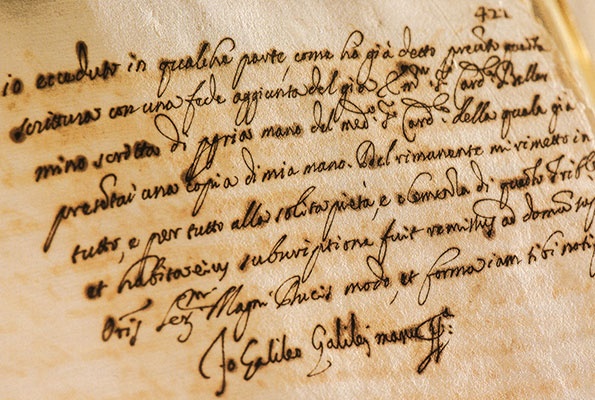 421
io ecceduto in qualcha parte, come hò già detto presèto questa
scrittura con una fede aggiunta del già Em.º S.r Card.le Bellar
mino scritta di ppria mano del med.º S.r Card.le della quale già
presètai una copia di mia mano. Del rimanente mi rimetto in
tutto, e per tutto alla solita pietà, e clemenza di questo Tribl
et habita eius subscriptione fuit remissus ad domum
Oris Ser.mi Magni Ducis modo, et forma iam sibi noti
Io Galileo Galilei manu pp.a: